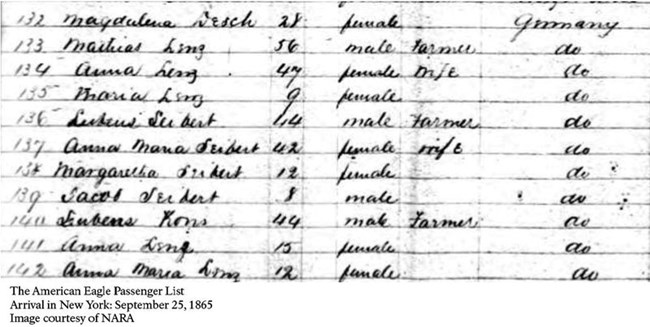 132 Magdalena Desch 28 female Germany
133 Mathias Leng 56 male Farmer do
134 Anna Leng 47 female Wife do
135 Maria Leng 9 female do
136 Seibert 44 male Farmer do
137 Anna Maria Seibert 42 female Wife do
138 Margaretha Seibert 12 female do
139 Jacob Seibert 8 male do
140 Kons 44 male Farmer do
141 Anna Leng 15 female do
142 Anna Maria Leng 12 female do
The American Eagle Passenger List
Arrival in New York: September 25, 1865
Image courtesy of NARA